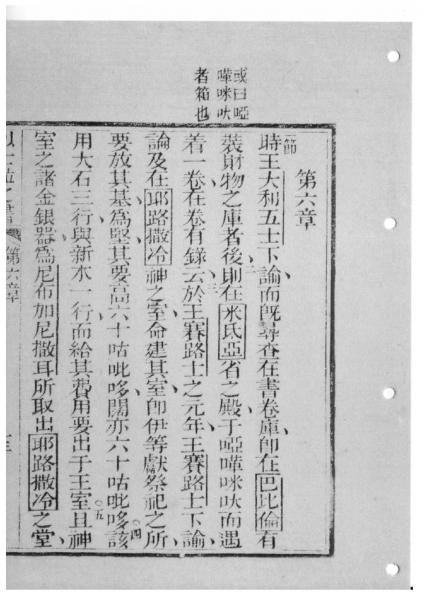 或曰啞
嘩咪吠
者箱也
第六章
節時王大利五士下論而旣尋查在書卷庫卽在巴比倫有
裝財物之庫者後則在米氏亞省之殿于啞嘩咪吠而遇
着一卷在卷有錄云於王賽路士之元年王賽路士下論
論及在耶路撒冷神之室命建其室卽伊等獻祭祀之所
要放其基爲堅其要高六十咕吡哆闊亦六十咕吡哆該四
用大石三行與新木一行而給其費用要出于王室且神五
室之諸金銀器爲尼布加尼撒耳所取出耶路撒冷之堂
第六章